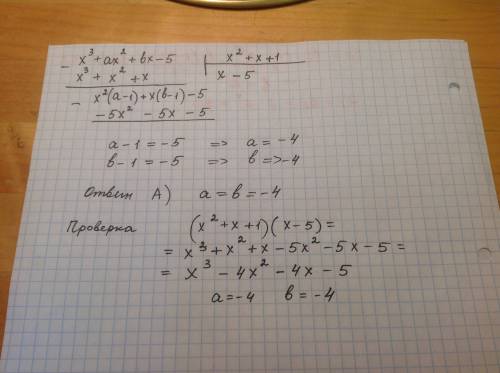 - x³ + ax² + bx - 5 | x² + x + 1
x³ + x² + x | x - 5
- x²(a-1) + x(b-1) - 5
-5x² - 5x - 5
a - 1 = -5 => a = -4
b - 1 = -5 => b => -4
Ответ А) a = b = -4
Проверка (x² + x + 1)(x - 5) =
= x³ + x² + x - 5x² - 5x - 5 =
= x³ - 4x² - 4x - 5
a = -4 b = -4